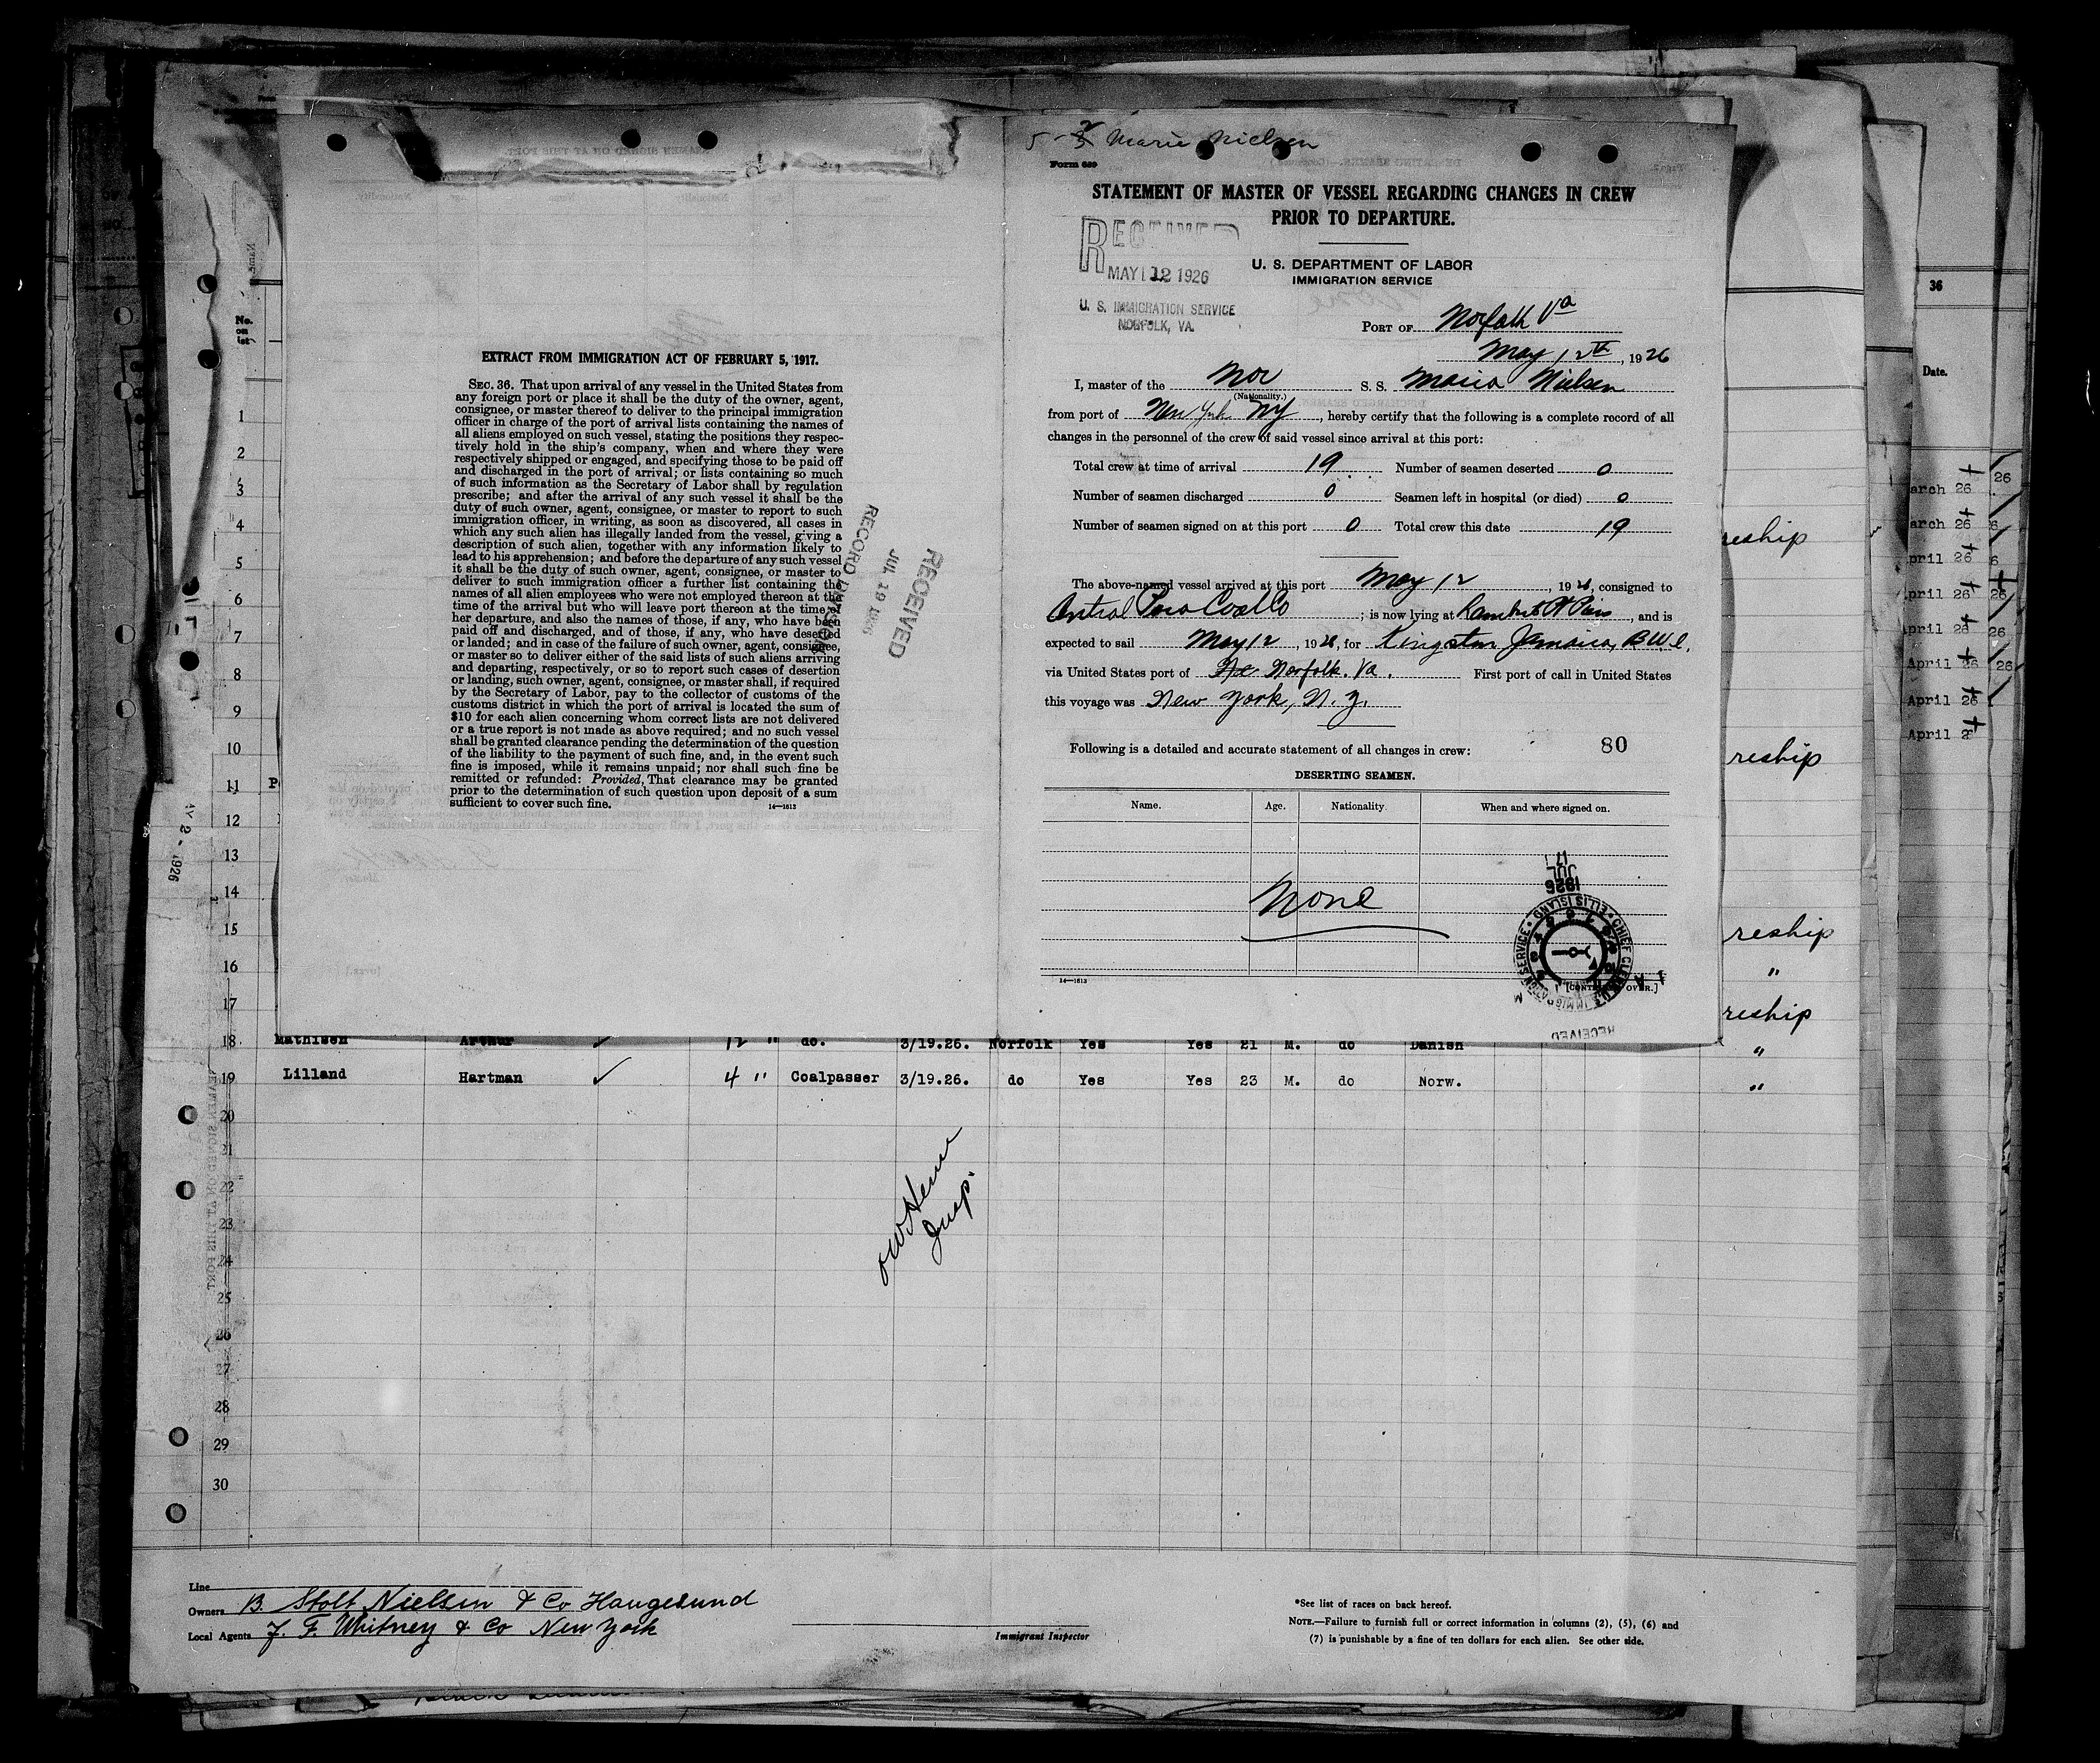 5-2 Marie Nielsen
Form 689
STATEMENT OF MASTER OF VESSEL REGARDING CHANGES IN CREW
PRIOR TO DEPARTURE.
RECEIVED
MAY 12 1926
U. S. IMMIGRATION SERVICE
NORFOLK, VA.
U. S. DEPARTMENT OF LABOR
IMMIGRATION SERVICE
PORT OF Norfolk Va
May 12th, 1926
I, master of the Nor S. S. Maria Nielsen
(Nationality.)
from port of New York NY, hereby certify that the following is a complete record of all
changes in the personnel of the crew of said vessel since arrival at this port:
Total crew at time of arrival 19 Number of seamen deserted 0
Number of seamen discharged 0 Seamen left in hospital (or died) 0
Number of seamen signed on at this port 0 Total crew this date 19
The above-named vessel arrived at this port May 12, 1926, consigned to
; is now lying at Lambert, and is
expected to sail May 12, 1926, for Kingston Jamaica, B.W.I.
via United States port of Norfolk. Va. First port of call in United States
this voyage was New York, N. Y.
Following is a detailed and accurate statement of all changes in crew:
80
DESERTING SEAMEN.
Name. Age. Nationality When and where signed on.
None
14—1613
[CONTINUED OVER.]
1926
JUL
17
CHIEF CLERK U.S. IMMIGRATION SERVICE • ELLIS ISLAND •
RECEIVED
EXTRACT FROM IMMIGRATION ACT OF FEBRUARY 5, 1917.
SEC. 36. That upon arrival of any vessel in the United States from
any foreign port or place it shall be the duty of the owner, agent,
consignee, or master thereof to deliver to the principal immigration
officer in charge of the port of arrival lists containing the names of
all aliens employed on such vessel, stating the positions they respec-
tively hold in the ship's company, when and where they were
respectively shipped or engaged, and specifying those to be paid off
and discharged in the port of arrival; or lists containing so much
of such information as the Secretary of Labor shall by regulation
prescribe; and after the arrival of any such vessel it shall be the
duty of such owner, agent, consignee, or master to report to such
immigration officer, in writing, as soon as discovered, all cases in
which any such alien has illegally landed from the vessel, giving a
description of such alien, together with any information likely to
lead to his apprehension; and before the departure of any such vessel
it shall be the duty of such owner, agent, consignee, or master to
deliver to such immigration officer a further list containing the
names of all alien employees who were not employed thereon at the
time of the arrival but who will leave port thereon at the time of
her departure, and also the names of those, if any, who have been
paid off and discharged, and of those, if any, who have deserted
or landed; and in case of the failure of such owner, agent, consignee,
or master so to deliver either of the said lists of such aliens arriving
and departing, respectively, or so to report such cases of desertion
or landing, such owner, agent, consignee, or master shall, if required
by the Secretary of Labor, pay to the collector of customs of the
customs district in which the port of arrival is located the sum of
$10 for each alien concerning whom correct lists are not delivered
or a true report is not made as above required; and no such vessel
shall be granted clearance pending the determination of the question
of the liability to the payment of such fine, and, in the event such
fine is imposed, while it remains unpaid; nor shall such fine be
remitted or refunded: Provided, That clearance may be granted
prior to the determination of such question upon deposit of a sum
sufficient to cover such fine.
14—1613
RECEIVED
JUL 19 1926
RECORD DIVISION
No.
on
list
1
2
3
4
5
6
7
8
9
10
11
12
13
14
15
16
17
18 Mathisen Arthur 12 " do. 3/19.26. Norfolk Yes Yes 21 M. do Danish "
19 Lilland Hartman ✓ 4 " Coalpasser 3/19.26. do Yes Yes 23 M. do Norw. "
20
21
22
23
24
25
26
27
28
29
30
Insp.
reship
reship
reship
"
reship
36
Date.
arch 26
arch 26
pril 26
pril 26
pril 26
April 26
April 26
April 2
Line
Owners B. Stolt Nielsen & Co Haugesund
Local Agents F. Whitney & Co New York
Immigrant Inspector
*See list of races on back hereof.
NOTE.—Failure to furnish full or correct information in columns (2), (5), (6) and
(7) is punishable by a fine of ten dollars for each alien. See other side.